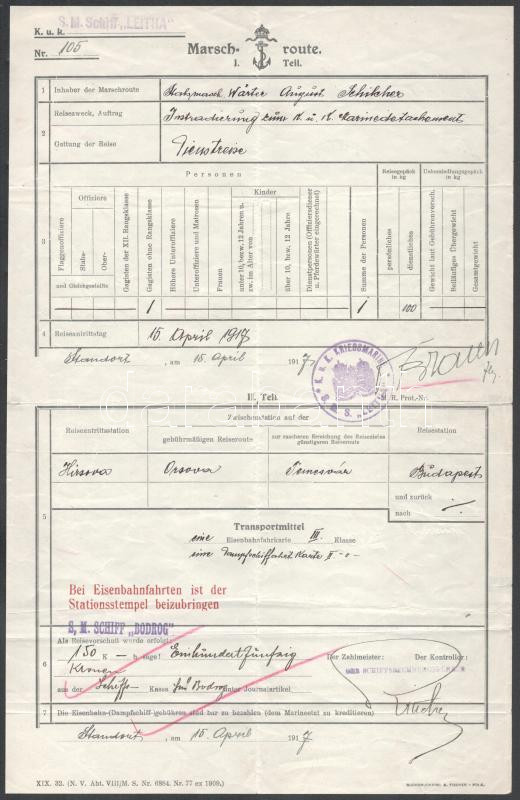 S. M. Schiff „LEITHA"
K. u. k.
Nr. 105
Marsch-route.
I. Teil.
1 Inhaber der Marschroute
Wärter August Schilcher
Reisezweck, Auftrag
Instradierung zum K. u. K. Marinedetachement
2
Gattung der Reise
Dienstreise
Personen
Reisegepäck in kg
Übersiedlungsgepäck in kg
3
Offiziere
Flaggenoffiziere
Stabs-
Ober-
und Gleichgestellte
Gagisten der XII. Rangsklasse
Gagisten ohne Rangsklasse
Höhere Unteroffiziere
Unteroffiziere und Matrosen
Frauen
Kinder
unter 10, bezw. 12 Jahren u. zw. im Alter von
über 10, bezw. 12 Jahre
Dienstpersonen (Offiziersdiener u. Pferdewärter eingerechnet)
Summe der Personen
persönliches
dienstliches
Gewicht laut Gebührenvorsch.
Beiläufiges Übergewicht
Gesamtgewicht
1 1 100
4 Reiseantrittstag
15. April 1917
Standort, am 15. April 1917
K. u. K. KRIEGSMARINE
S. M. S. „LEITHA"
M. R. Prot.-Nr.
II. Teil
Reiseantrittsstation
Zwischenstation auf der
gebührmäßigen Reiseroute
zur rascheren Erreichung des Reisezieles günstigeren Reiseroute
Reisestation
Hirsova
Orsova
Temesvár
Budapest
und zurück
nach
5
Transportmittel
eine Eisenbahnfahrkarte III. Klasse
eine Dampfschiffahrt Karte II -o-
Bei Eisenbahnfahrten ist der
Stationsstempel beizubringen
S. M. SCHIFF „BODROG"
Als Reisevorschuß wurde erfolgt:
6
150 K — h sage! Einhundertfünfzig
Kronen
Der Zahlmeister:
Der Kontrollor:
aus der Schiffs- Kassa Bodrog unter Journalartikel
7 Die Eisenbahn-(Dampfschiff-)gebühren sind bar zu bezahlen (dem Marineetat zu kreditieren)
Standort, am 15. April 1917
XIX. 32. (N. V. Abt. VIII/M. S. Nr. 6864, Nr. 77 ex 1909.)